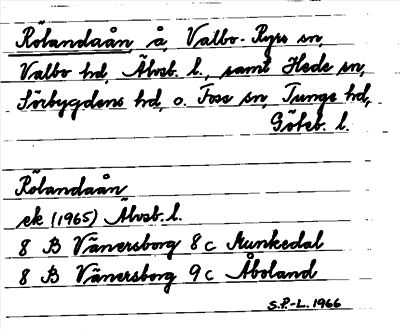 Rölandaån, å, Valbo-Ryrs sn,
Valbo hd, Älvsb. l., samt Hede sn,
Sörbygdens hd, o. Foss sn, Tunge hd,
Göteb. l.
Rölandaån
ek (1965) Älvsb. l.
8 B Vänersborg 8c Munkedal
8 B Vänersborg 9c Åboland
S.P-L. 1966